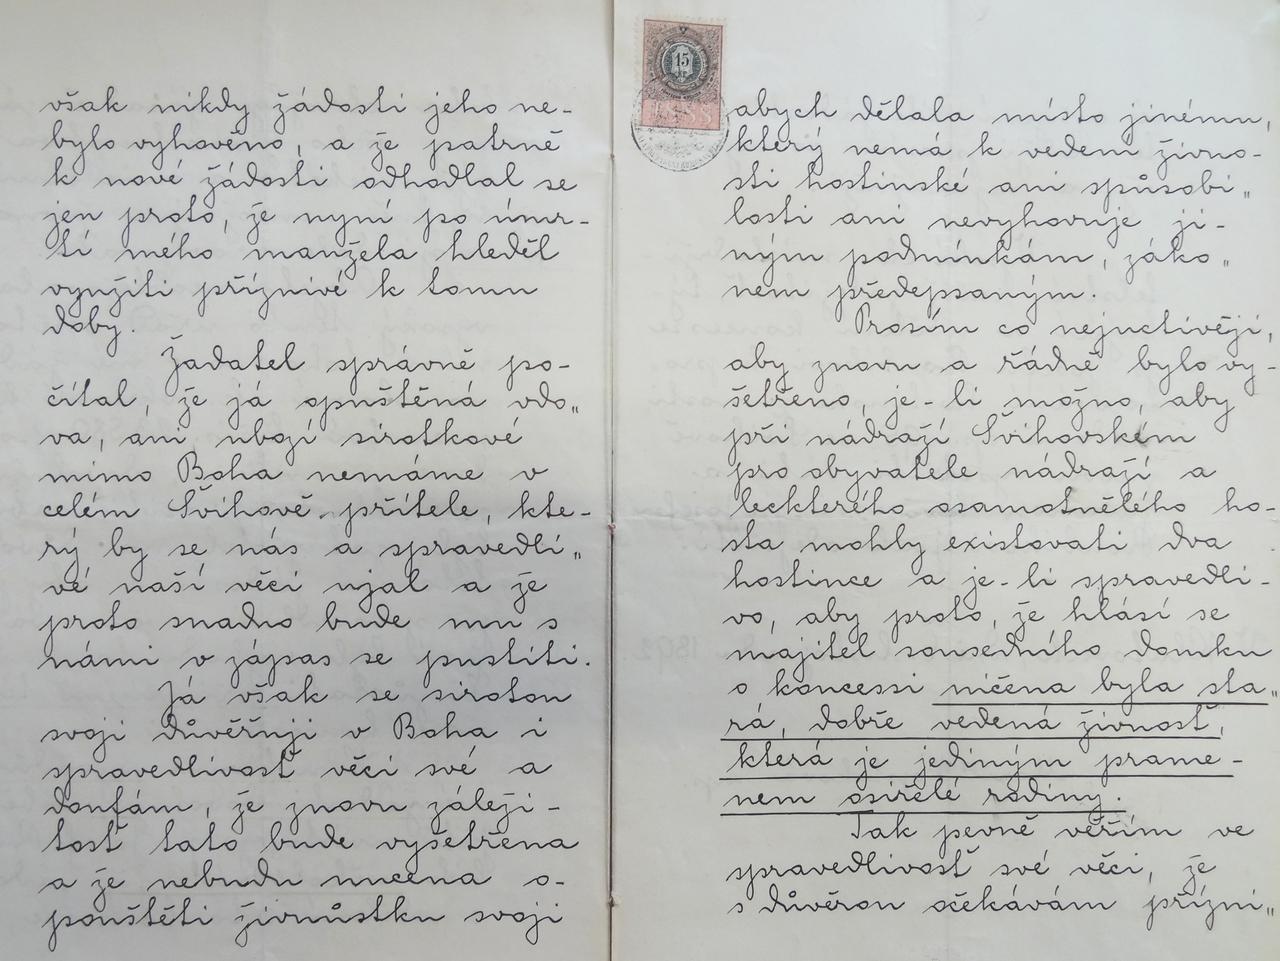 však nikdy žádosti jeho ne-
bylo vyhověno, a že patrně
k nové žádosti odhodlal se
jen proto, že nyní po úmr-
tí mého manžela hleděl
využiti příznivé k tomu
doby.
Žadatel správně po-
čítal, že já opuštěná vdo„
va, ani ubozí sirotkové
mimo Boha nemáme v
celém Švihově přítele, kte-
rý by se nás a spravedli„
vé naší věci ujal a že
proto snadno bude mu s
námi v zápas se pustiti.
Já však se sirotou
svojí důvěřuji v Boha i
spravedlivosť věci své a
doufám, že znovu záleži-
tosť tato bude vyšetřena
a že nebudu nucena o-
pouštěti živnůstku svoji
15
kr
1888
abych dělala místo jinému,
který nemá k vedení živno-
sti hostinské ani spůsobi„
losti ani nevyhovuje ji-
ným podmínkám, záko„
nem předepsaným.
Prosím co nejuctivěji,
aby znovu a řádně bylo vy-
šetřeno, je-li možno, aby
při nádraží Švihovském
pro obyvatele nádraží a
leckterého osamotnělého ho-
sta mohly existovati dva
hostince a je-li spravedli-
vo, aby proto, že hlásí se
majitel sousedního domku
o koncessi ničena byla sta„
rá, dobře vedená živnosť,
která je jediným prame-
nem osiřelé rodiny.
Tak pevně věřím ve
spravedlivosť své věci, že
s důvěrou očekávám přízni„